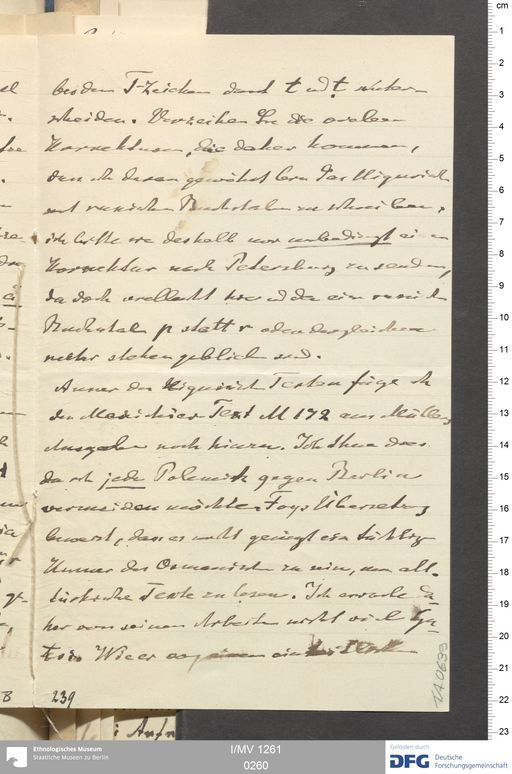 bei dem T-Zeichen durch t und ṭ unter-
scheiden. Verzeihen Sie die vielen
Korrekturen, die daher kommen,
dass ich daran gewöhnt bin das Uigurisch
mit russischen Buchstaben zu schreiben,
ich bitte sie deshalb mir unbedingt eine
Korrektur nach Petersburg zu senden,
da doch vielleicht hie und da ein russisch
Buchstabe p statt r oder dergleichen
mehr stehen geblieben sind.
Ausser den Uigurisch Texten füge ich
den Manichäer Text M 172 aus Müllers
Ausgabe noch hinzu. Ich thue das.
da ich jede Polemik gegen Berlin
vermeiden möchte. Foys Übersetzung
beweist, dass es nicht genügt ein tüchtiger
Kenner des Osmanischen zu sein, um alt-
türkische Texte zu lesen. Ich erwarte da-
her von seinen Arbeiten nicht viel Gu-
tes. Wie er
239
B
1A0639
cm
1
2
3
4
5
6
7
8
9
10
11
12
13
14
15
16
17
18
19
20
21
22
23
Ethnologisches Museum
Staatliche Museen zu Berlin
I/MV 1261
0260
Gefördert durch
DFG Deutsche
Forschungsgemeinschaft